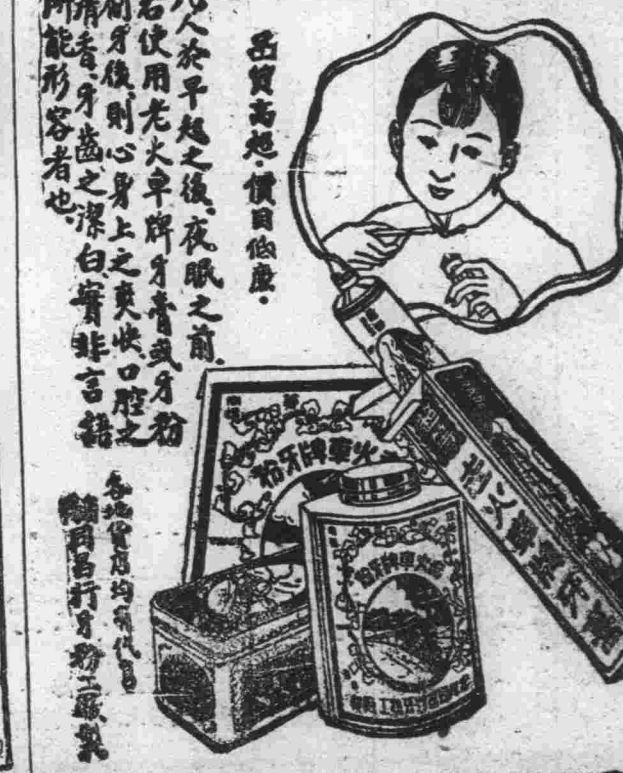 品質高超·價目低廉·
凡人於早起之後、夜眠之前、
若使用老火車牌牙膏或牙粉
刷牙後、則心身上之爽快口腔之
清香、牙齒之潔白、實非言語
所能形容者也、
各地貨店均有代售
同昌行牙粉工廠製
火車牌牙粉
老火車牌牙粉
老火車牌牙膏